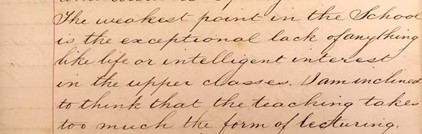 The weakest point in the School
is the exceptional lack of anything
like life or intelligent interest
in the upper classes. I am inclined
to think that the teaching takes
too much the form of lecturing.